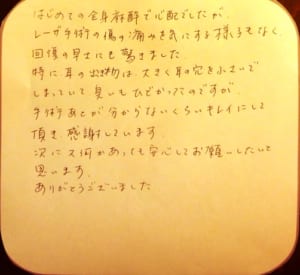 はじめての全身麻酔で心配でしたが、
レーザ手術の傷の痛みを気にする様子もなく、
回復の早さにも驚きました。
特に耳の出来物は、大きく耳の穴を小さいで
しまっていて臭いもひどかったのですが、
手術あとが分からないくらいキレイにして
頂き感謝しています。
次に又何かあっても安心してお願いしたいと
思います。
ありがとうございました